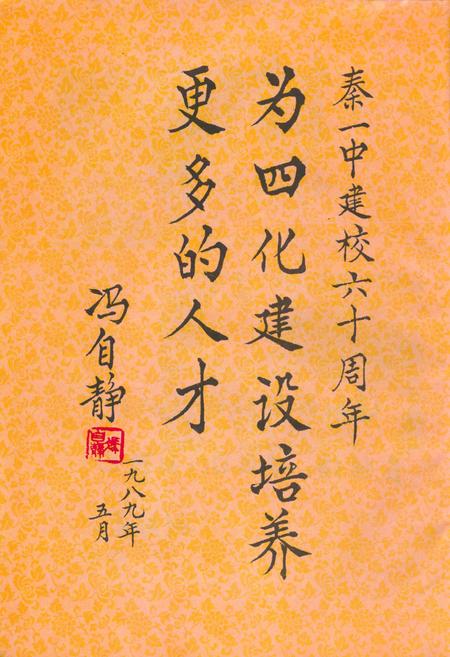 秦一中建校六十周年
为四化建设培养
更多的人才
冯自静
一九八九年
五月